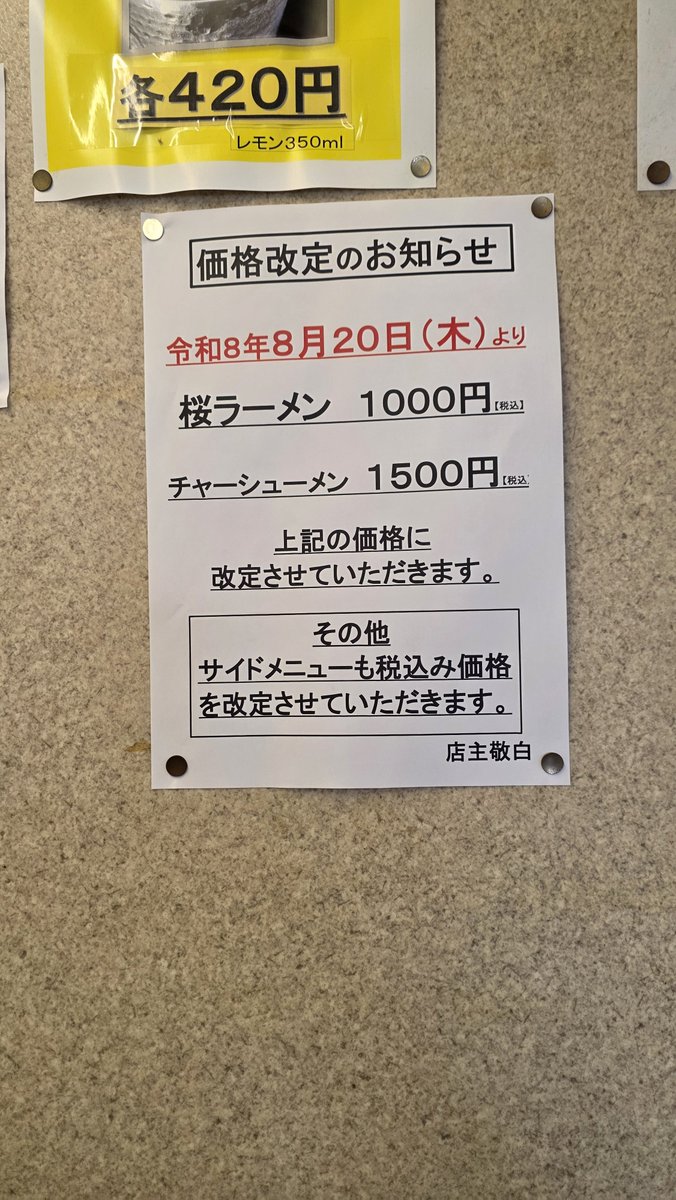 各420円
レモン350ml
価格改定のお知らせ
令和8年8月20日(木)より
桜ラーメン 1000円【税込】
チャーシューメン 1500円【税込
上記の価格に
改定させていただきます。
その他
サイドメニューも税込み価格
を改定させていただきます。
店主敬白